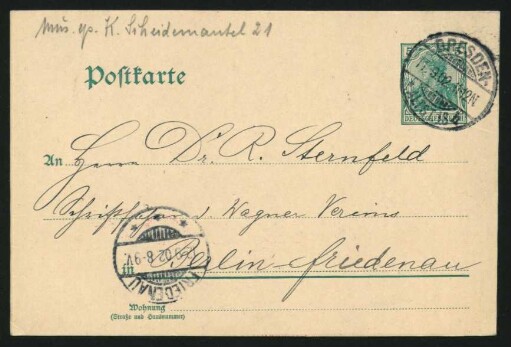 Mus. ep. K. Scheidemantel 21
Postkarte
DRESDEN
An Herrn Dr. R. Sternfeld
Schriftführer d Wagner Vereins
FRIEDENAU
9.02. 8-9V.
in Berlin friedenau
Wohnung
(Straße und Hausnummer)